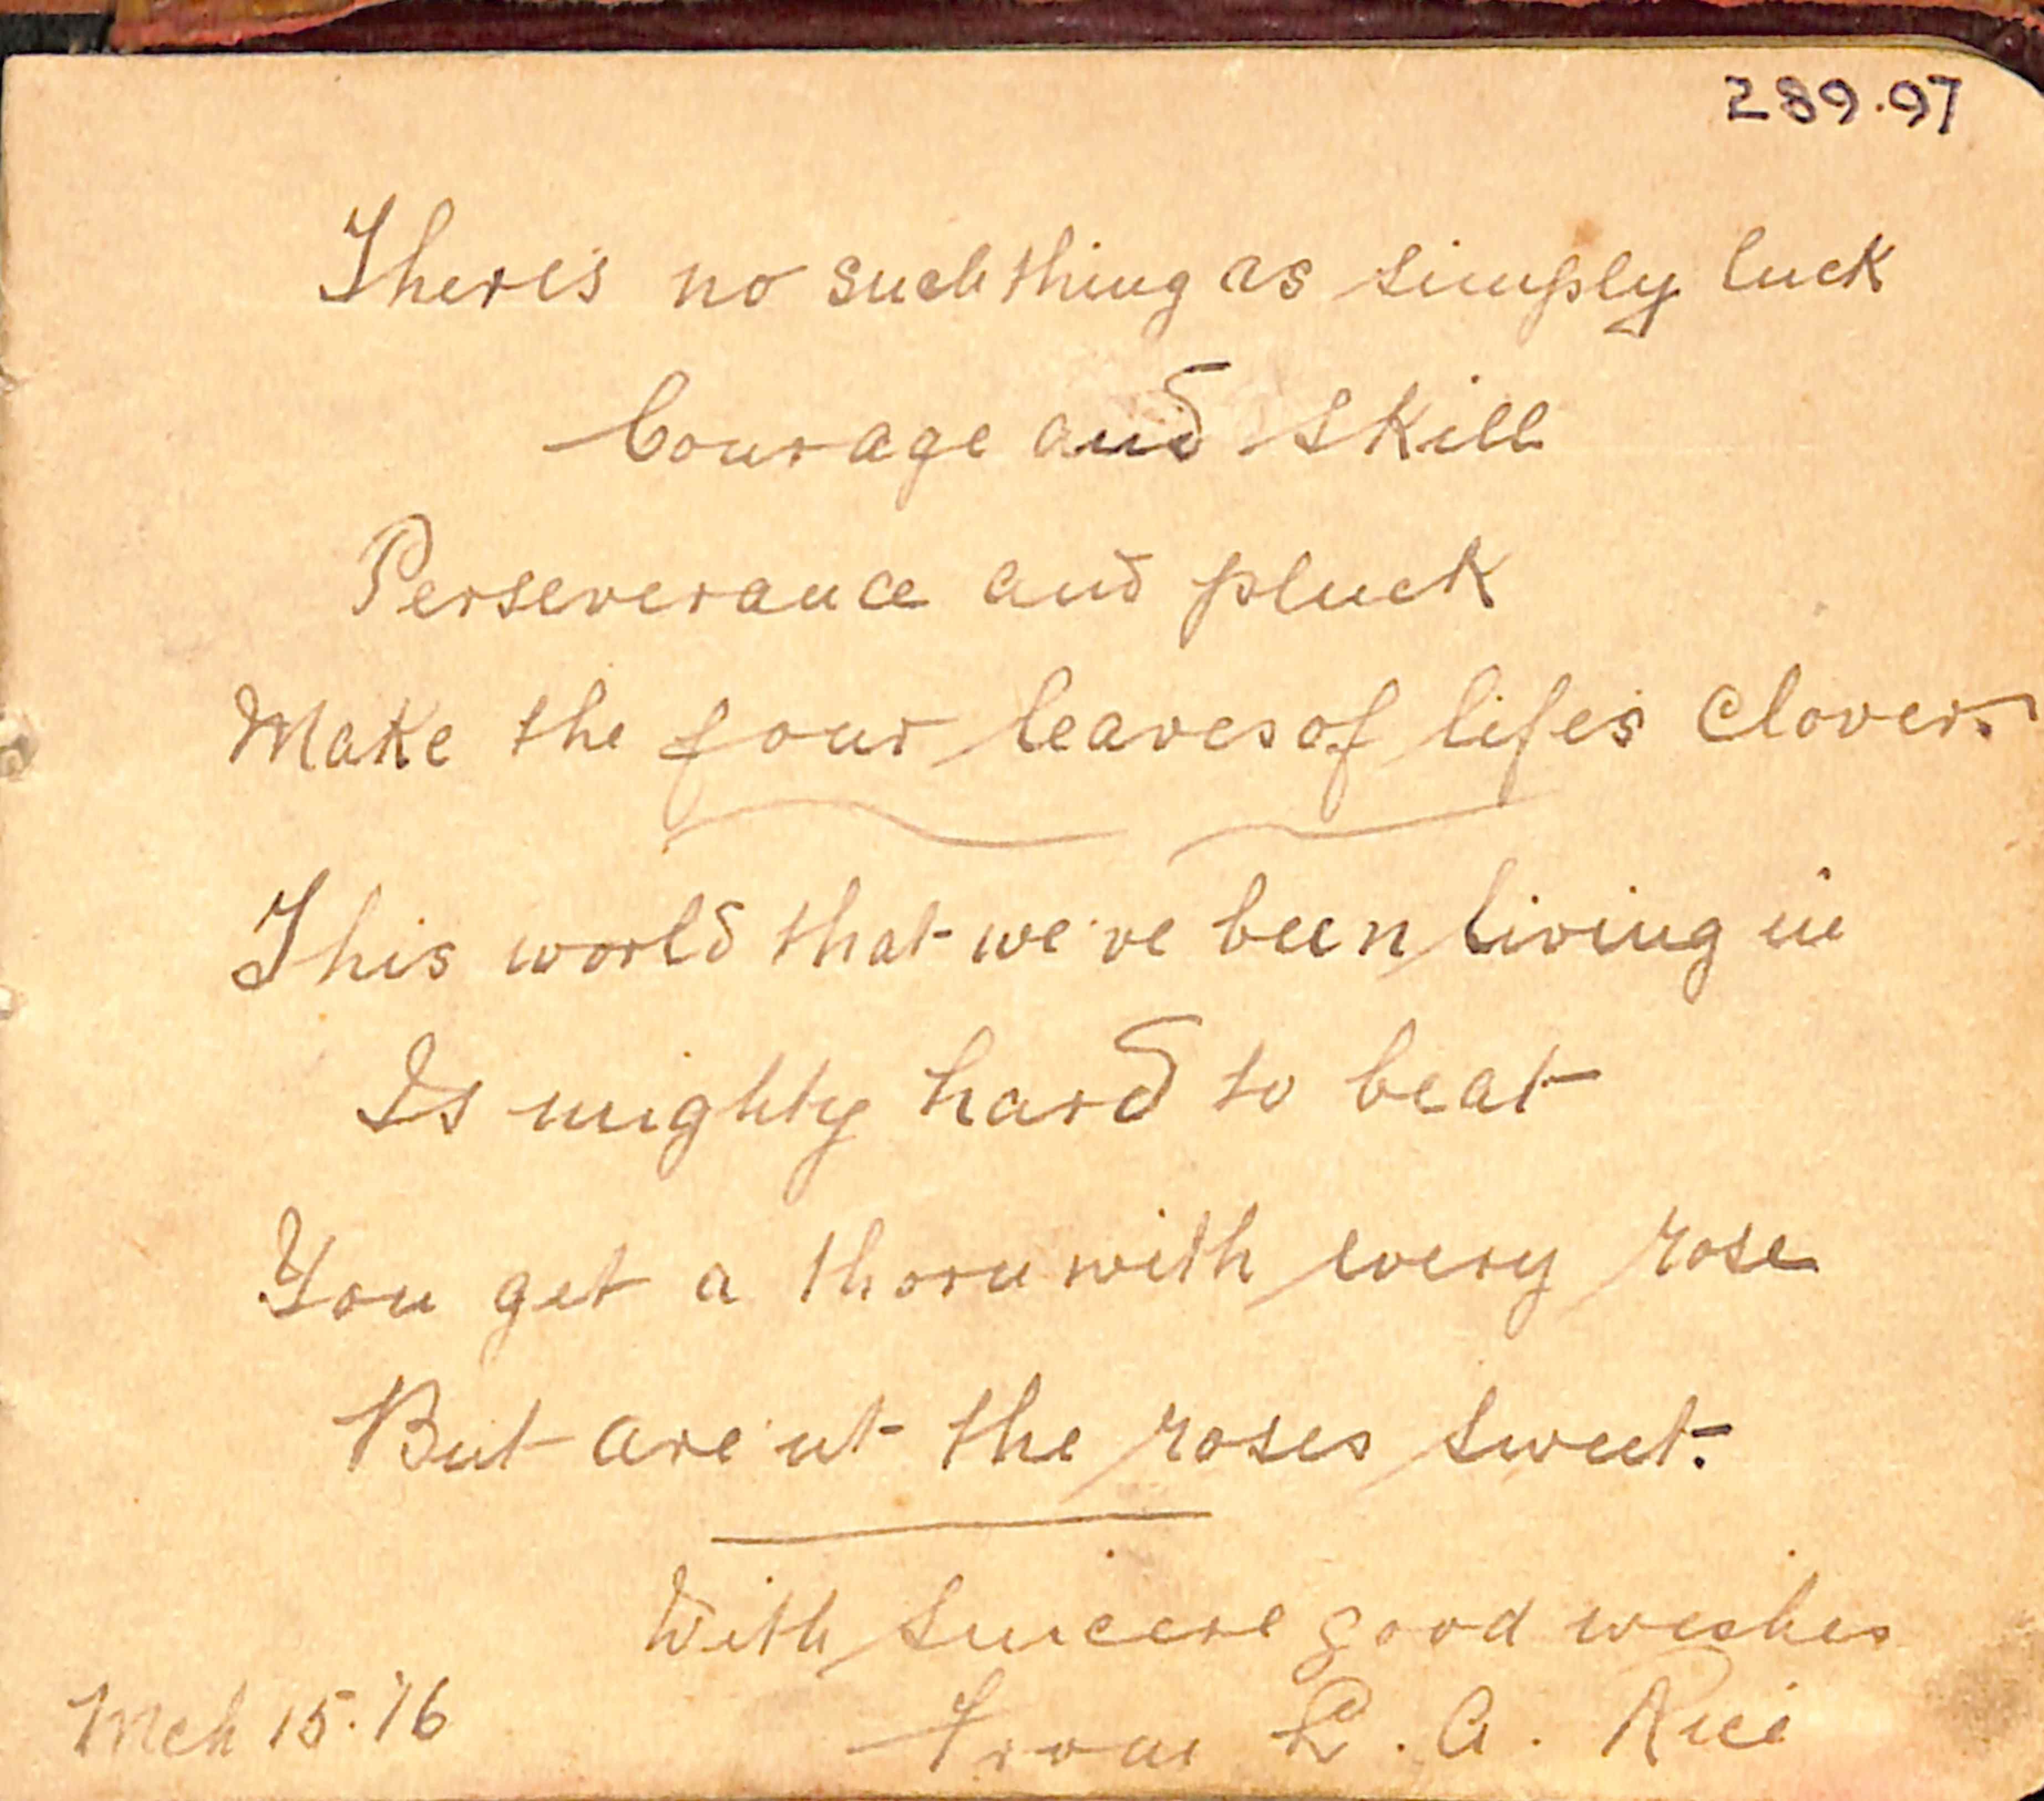 289.97
There's no such thing as simply luck
Courage and skill
Perseverance and pluck
Make the four leaves of life's clover.
This world that we've been living in
Is mighty hard to beat
You get a thorn with every rose
But are'nt the roses sweet.
With sincere good wishes
Mch 15.'16
From L. A. Rice